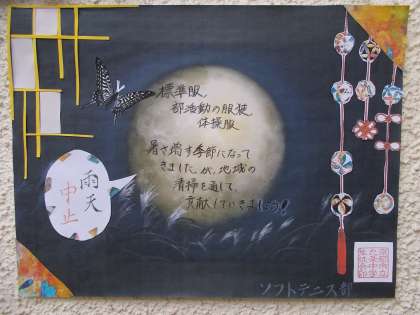 標準服
部活動の服装
体操服
暑さ増す季節になって
きましたが、地域の
清掃を通して、
貢献していきましょう!
雨天
中止
ソフトテニス部